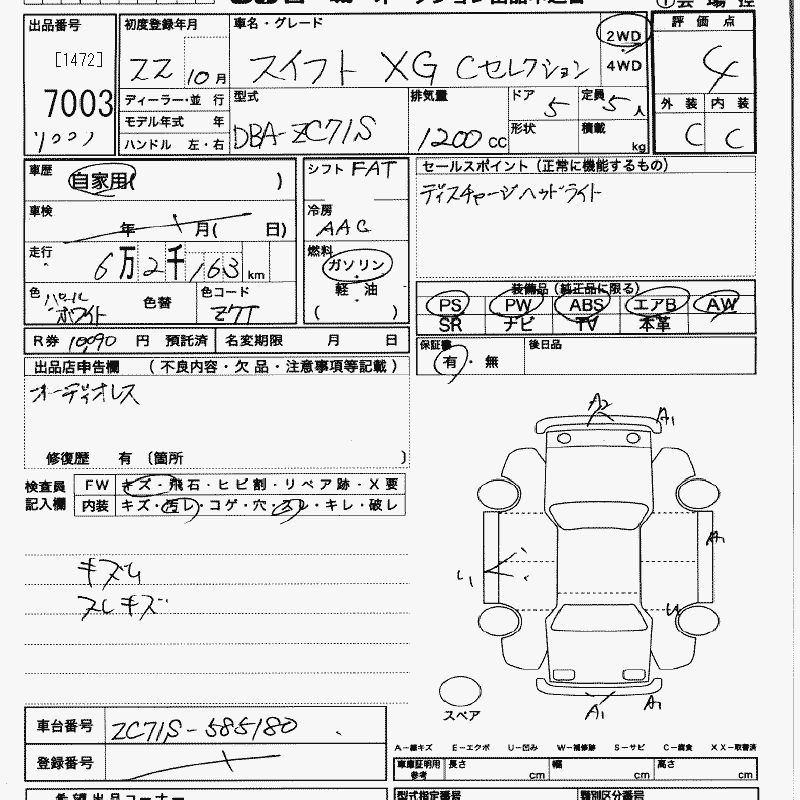 出品番号
[1472]
7003
初度登録年月
22 10月
車名・グレード
スイフト XG Cセレクション
2WD
4WD
評価点
4
外装 内装
C C
ディーラー・並行
モデル年式 年
ハンドル 左・右
型式
DBA-ZC71S
排気量
1200cc
ドア
5
定員
5人
形状
積載
kg
車歴
自家用( )
車検
年 月( 日)
走行
6万2千163km
色
パール
ホワイト
色替
色コード
Z7T
シフト FAT
冷房
AAC
燃料
ガソリン
軽・油
( )
セールスポイント(正常に機能するもの)
ディスチャージヘッドライト
装備品(純正品に限る)
PS PW ABS エアB AW
SR ナビ TV 本革
R券 10090 円 預託済 名変期限 月 日
保証書
有・無
後日品
出品店申告欄 (不良内容・欠品・注意事項等記載)
オーディオレス
修復歴 有 〔箇所 〕
検査員
記入欄
FW キズ・飛石・ヒビ割・リペア跡・X要
内装 キズ・汚レ・コゲ・穴・スレ・キレ・破レ
キズU
スレキズ
A2
A1
A1
U1
A1
A1
スペア
車台番号 ZC71S-585180
登録番号
A-線キズ E-エクボ U-凹み W-補修跡 S-サビ C-腐食 XX-取替済
車庫証明用
参考
長さ cm 幅 cm 高さ cm
希望出品コーナー
型式指定番号 類別区分番号